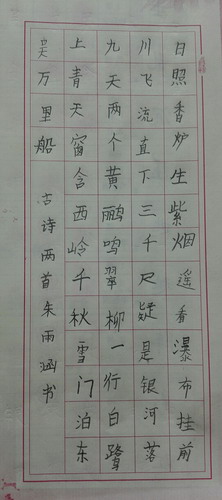 日照香炉生紫烟遥看瀑布挂前
川飞流直下三千尺疑是银河落
九天两个黄鹂鸣翠柳一行白鹭
上青天窗含西岭千秋雪门泊东
吴万里船
古诗两首朱雨涵书